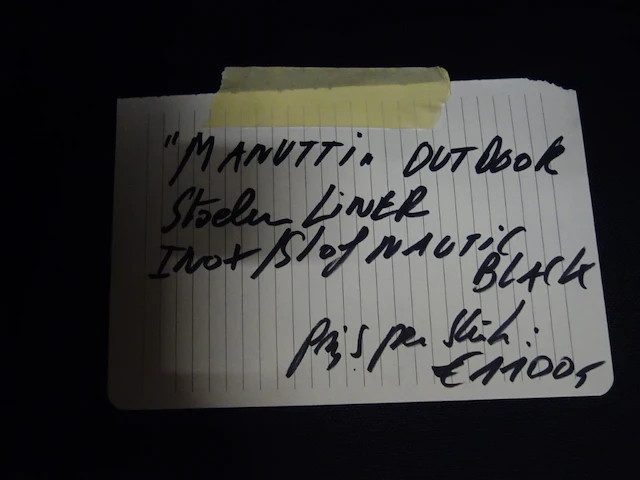 "MANUTTI" OUTDOOR
Stoelen LINER
INOX/Stof NAUTIC
BLACK
Prijs per Stuk:
€1100,